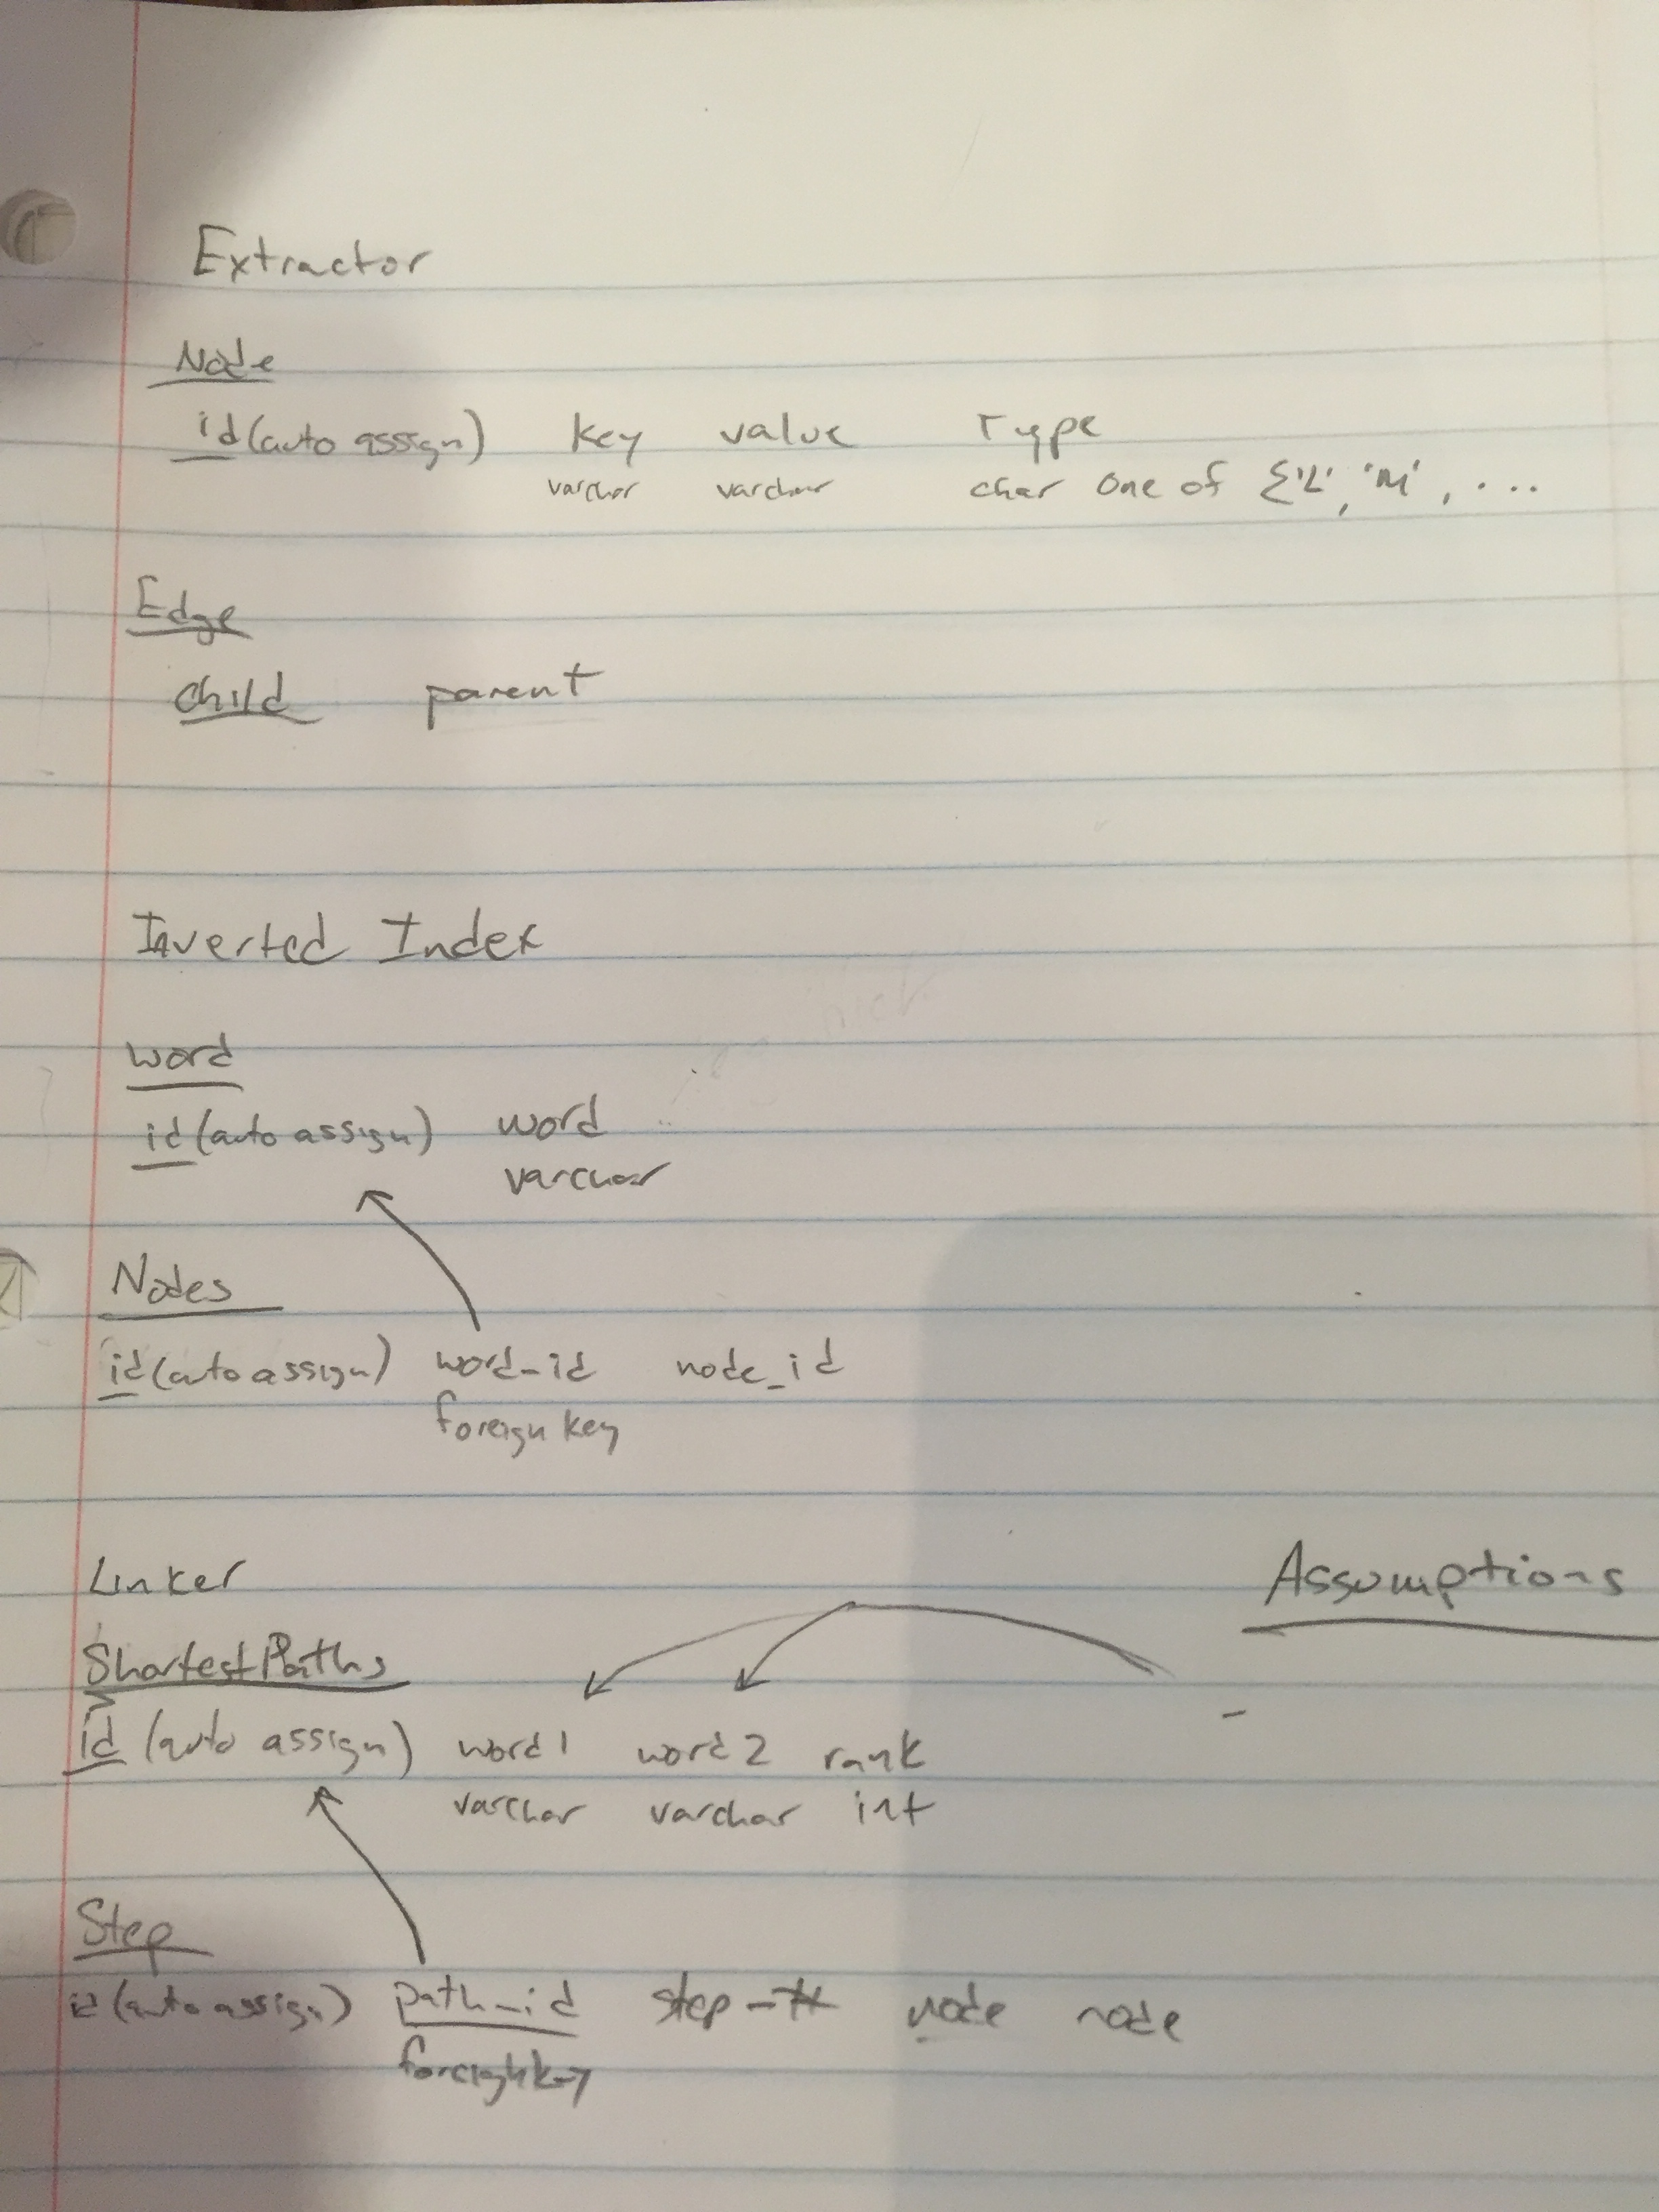 Extractor
Node
id (auto assign) key value Type
varchar varchar char one of {'L', 'M', ...
Edge
child parent
Inverted Index
word
id (auto assign) word
varchar
Nodes
id (auto assign) word_id node_id
foreign key
Linker
Assumptions
ShortestPaths
-
id (auto assign) word1 word2 rank
varchar varchar int
Step
id (auto assign) path_id step-# node node
foreign key